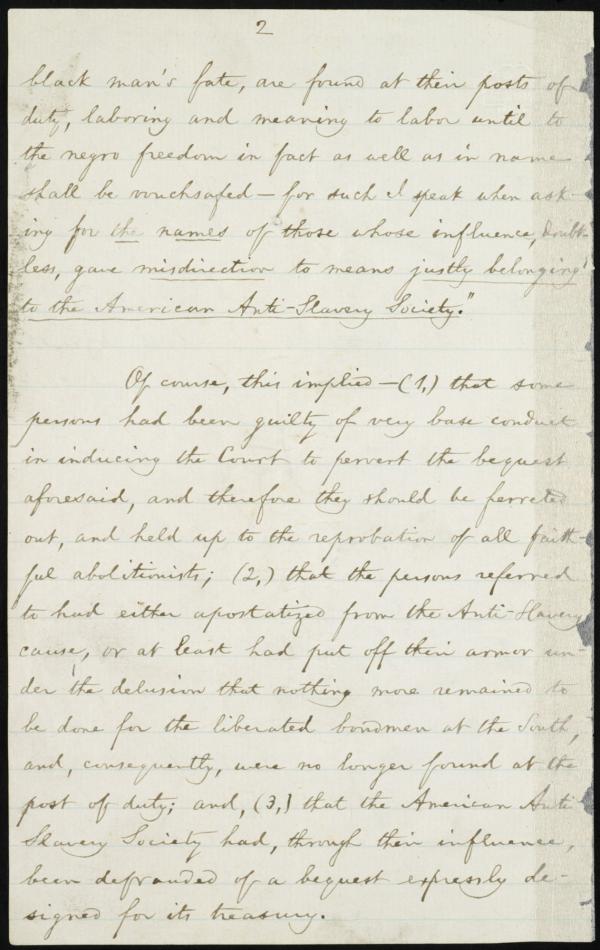 2
black man's fate, are found at their posts of
duty, laboring and meaning to labor until to
the negro freedom in fact as well as in name
shall be vouchsafed — for such I speak when ask-
ing for the names of those whose influence, doubt-
less, gave misdirection to means justly belonging
to the American Anti-Slavery Society."
Of course, this implied — (1,) that some
persons had been guilty of very base conduct
in inducing the Court to pervert the bequest
aforesaid, and therefore they should be ferreted
out, and held up to the reprobation of all faith-
ful abolitionists; (2,) that the persons referred
to had either apostatized from the Anti-Slavery
cause, or at least had put off their armor un-
der the delusion that nothing more remained to
be done for the liberated bondmen at the South,
and, consequently, were no longer found at the
post of duty; and, (3,) that the American Anti
Slavery Society had, through their influence,
been defrauded of a bequest expressly de-
signed for its treasury.